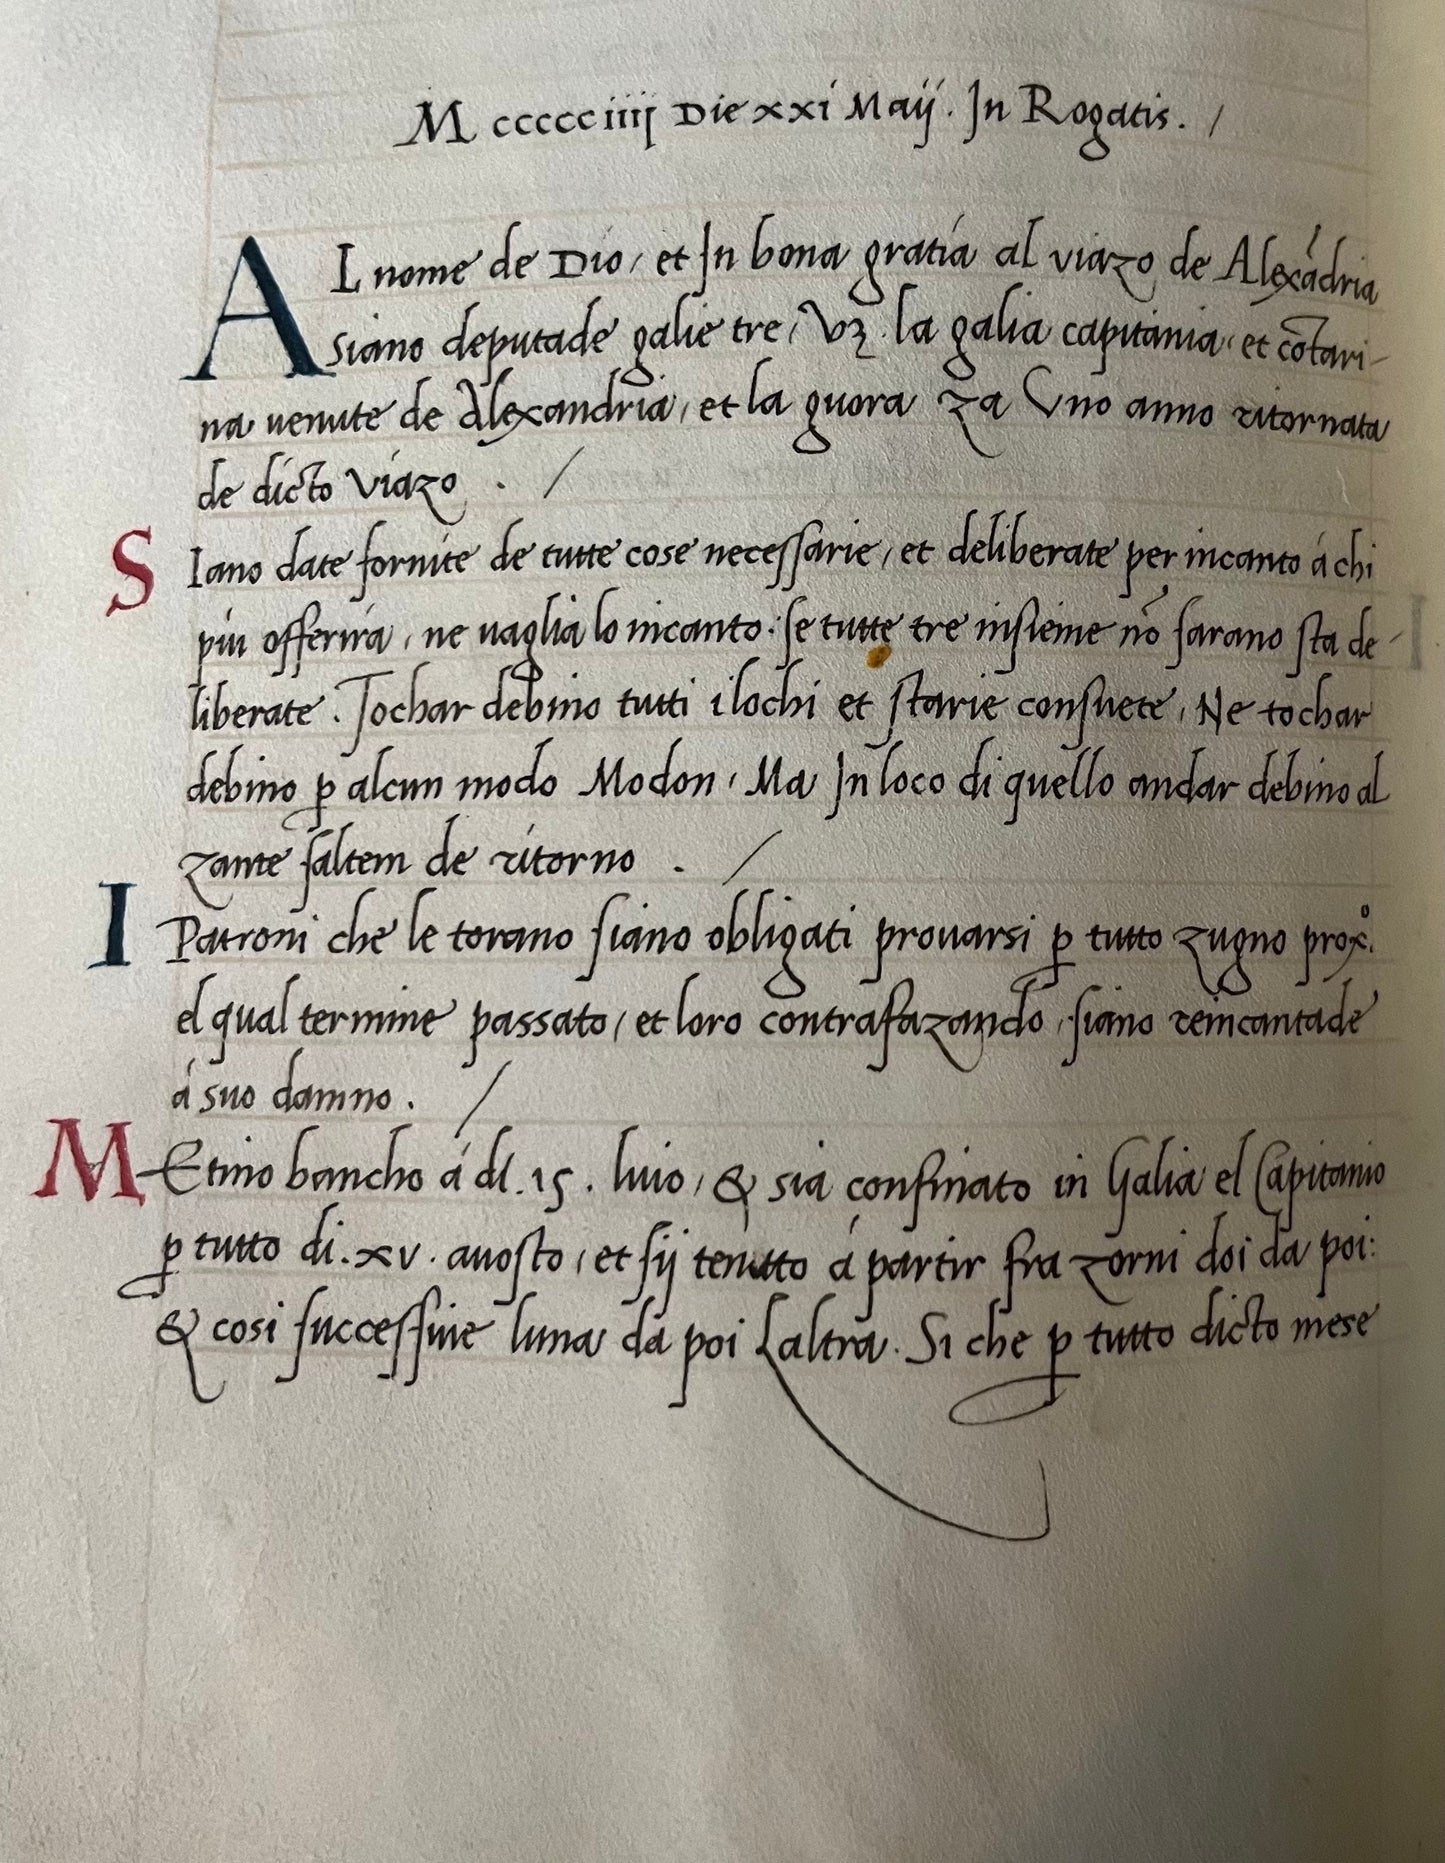 M ccccciiij Die xxi Maij. In Rogatis. /
AL nome de Dio, et In bona gratia al viazo de Alexãdria
siano deputade galie tre, Vꝫ. la galia capitania, et cõtari-
na venute de Alexandria, et la guora za Uno anno ritornata
de dicto viazo . /
SIano date fornite de tutte cose necessarie, et deliberate per incanto á chi
piu offerira, ne vaglia lo incanto: se tutte tre insieme nõ sarano sta de-
liberate. Tochar debino tutti i lochi et starie consuete, Ne tochar
debino ꝑ alcun modo Modon, Ma In loco di quello andar debino al
zante saltem de ritorno . /
I Patroni che le torano siano obligati provarsi ꝑ tutto zugno prox.º
el qual termine passato, et loro contrafazando, siano reincantade
á suo damno. /
MEtino bancho á dì. 15. luio, & sia confinato in Galia el Capitanio
ꝑ tutto di. xv. avosto, et sij tenutto á partir fra zorni doi da poi:
& cosi successive luna da poi Laltra. Si che ꝑ tutto dicto mese